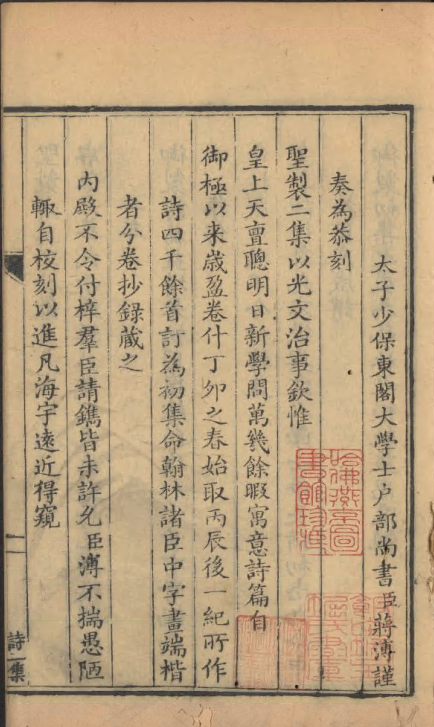 太子少保東閣大學士户部尚書臣蔣溥謹
奏為恭刻
聖製二集以光文治事欽惟
皇上天亶聰明日新學問萬幾餘暇寓意詩篇自
御極以来歳盈卷什丁夘之春始取丙辰後一紀所作
詩四千餘首訂為初集命翰林諸臣中字畫端楷
者分卷抄録蔵之
内殿不令付梓羣臣請鐫皆未許允臣溥不揣愚陋
輙自校刻以進凡海宇逺近得窺
詩二集
一
哈佛燕京圖書館珍藏